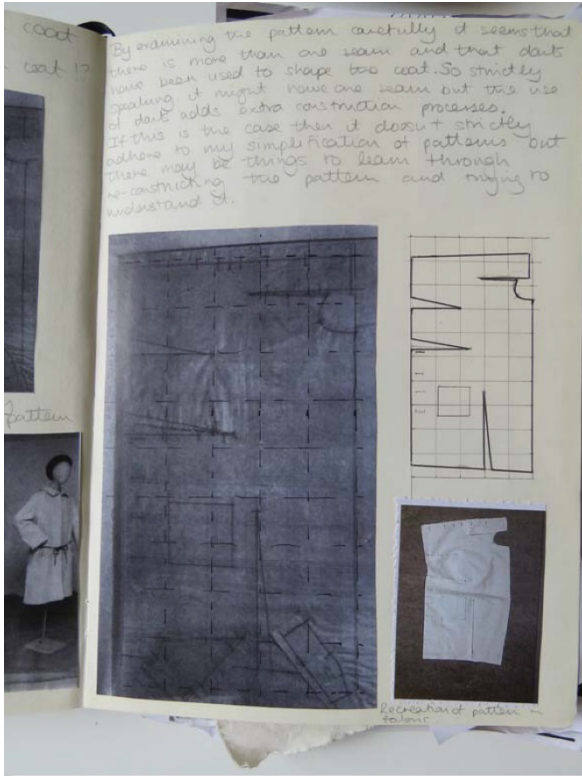 coat
coat !?
By examining the pattern carefully it seems that
there is more than one seam and that darts
have been used to shape the coat. So strictly
speaking it might have one seam but the use
of darts adds extra construction processes.
If this is the case then it doesn't strictly
adhere to my simplification of patterns but
there may be things to learn through
re-constricting the pattern and trying to
understand it.
pattern
Recreation of pattern in